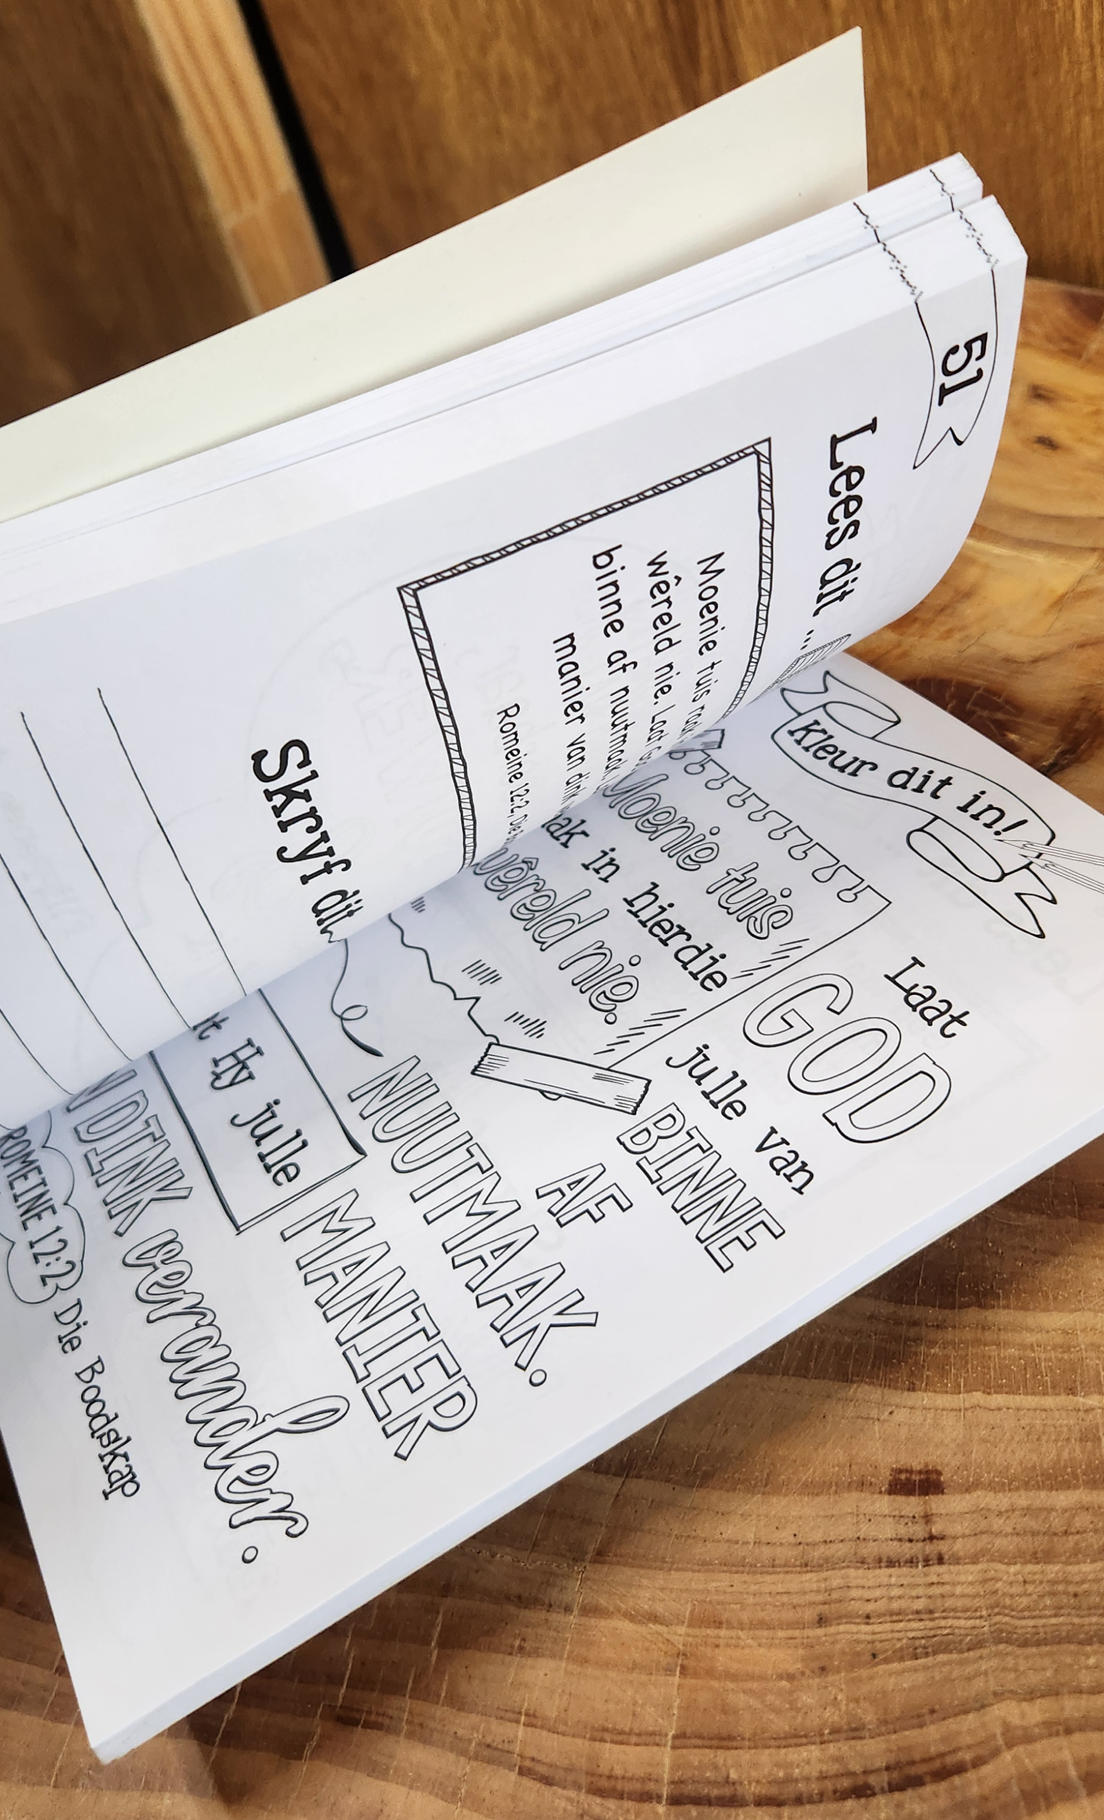 51
Lees dit ...
Moenie tuis
wêreld nie. Laat
binne af nuutmaak
manier van
Romeine 12:2,
Skryf dit
Kleur dit in!
Moenie tuis
in hierdie
wêreld nie.
Laat
GOD
julle van
BINNE
AF
NUUTMAAK.
Hy julle
MANIER
DINK
verander.
ROMEINE 12:2
Die Boodskap